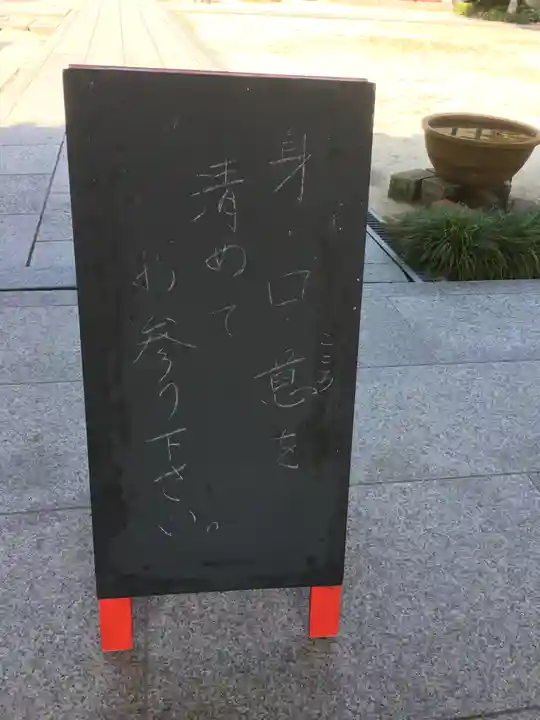 身・口・意をこころ
清めて
お参り下さい。